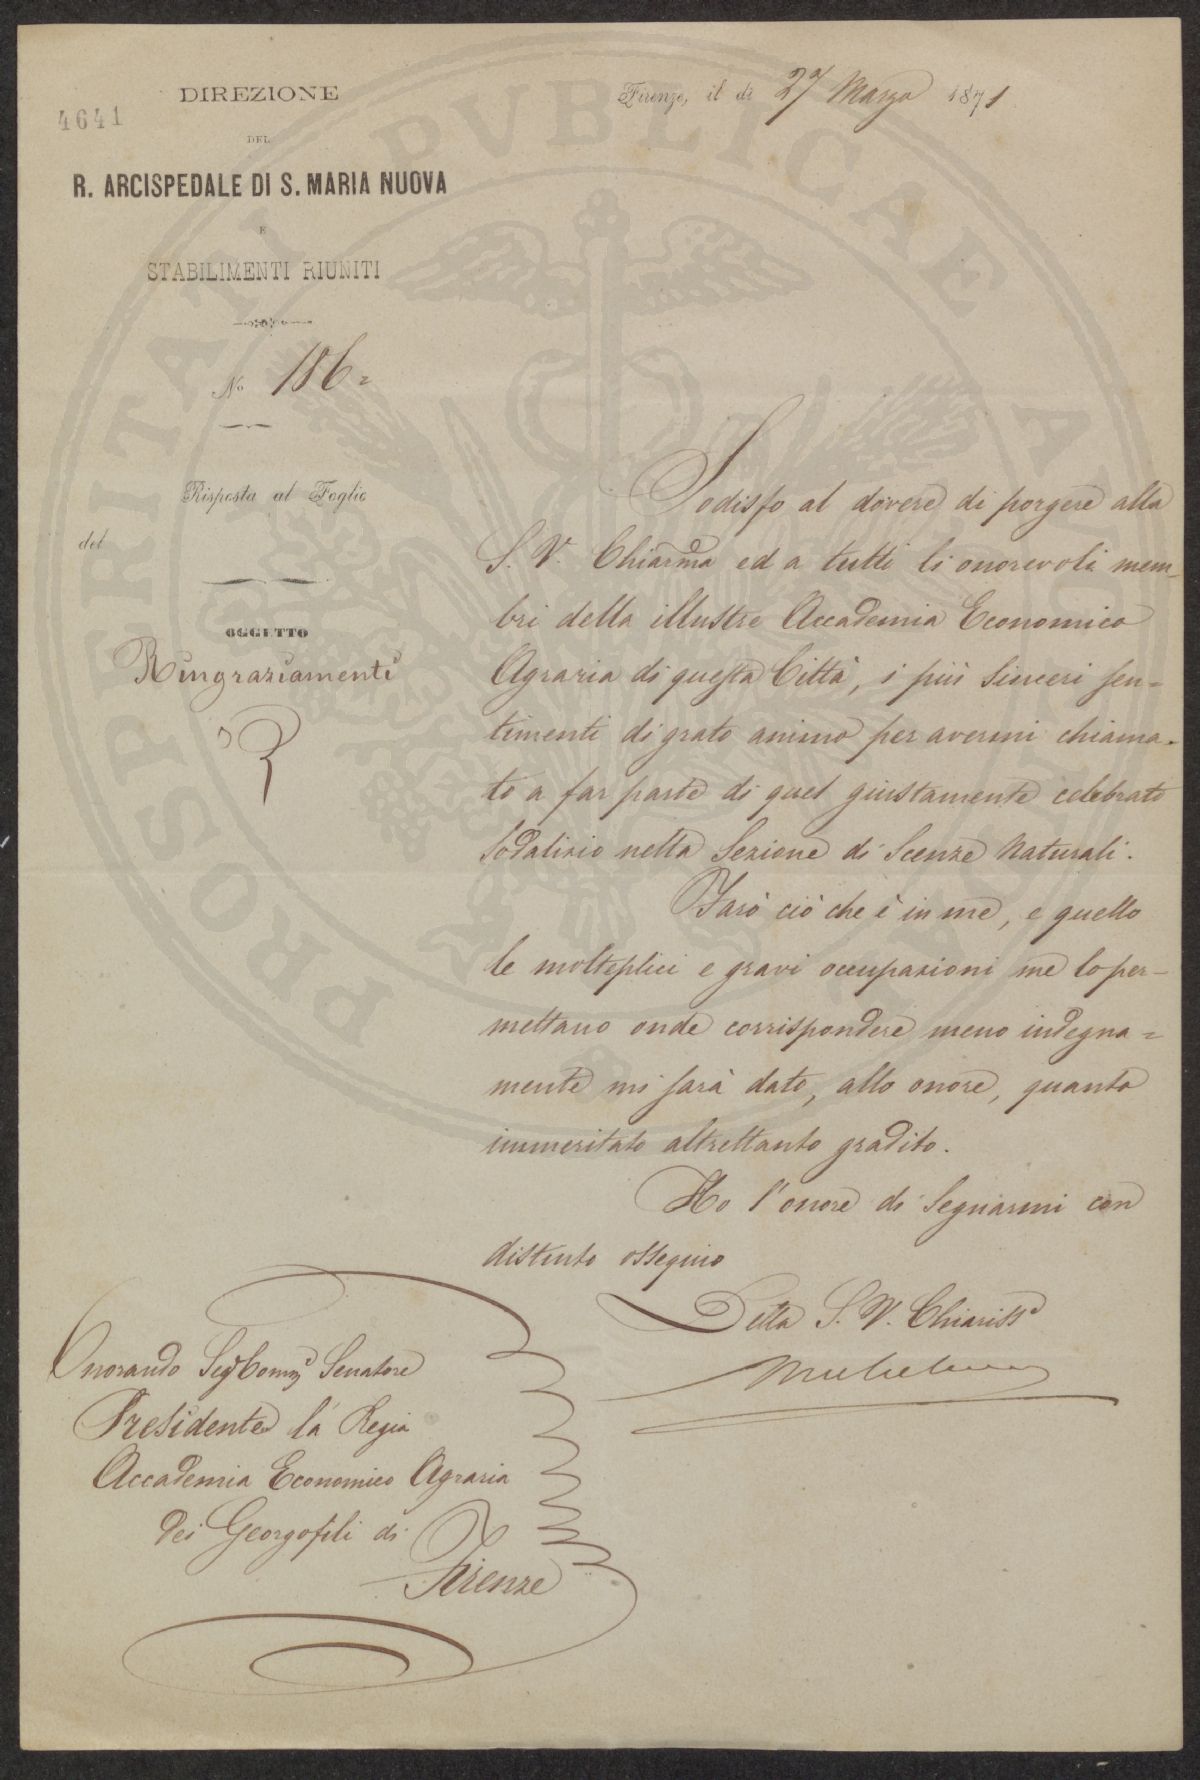 DIREZIONE
4641
DEL
R. ARCISPEDALE DI S. MARIA NUOVA
E
STABILIMENTI RIUNITI
No 186=
Risposta al Foglio
del
OGGETTO
Ringraziamenti
Firenze, il dì 27 Marzo 1871
Sodisfo al dovere di porgere alla
S. V. Chiarma ed a tutti li onorevoli mem-
bri della illustre Accademia Economico
Agraria di questa Città, i più sinceri sen=
timenti di grato animo per avermi chiama=
to a far parte di quel giustamente celebrato
Sodalizio nella Sezione di Scenze Naturali.
Farò ciò che è in me, e quello
le molteplici e gravi occupazioni me lo per-
mettano onde corrispondere meno indegna=
mente mi sarà dato, allo onore, quanto
immeritato altrettanto gradito.
Ho l'onore di segnarmi con
distinto ossequio
Della S. V. Chiariss
Onorando Sigr Senatore
Presidente la Regia
Accademia Economico Agraria
dei Georgofili di
Firenze
PROSPERITATI PVBLICAE